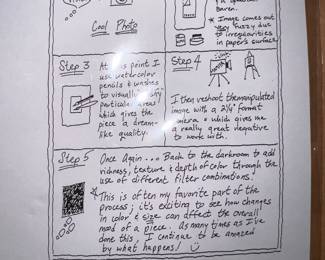 Cool Photo
Baren.
* Image comes out
very fuzzy due
to irregularities
in paper's surface.
Step 3
At this point I
use watercolor
pencils & washes
to visually
particular areas
which gives the
piece a dream-
like quality.
Step 4
I then reshoot the manipulated
image with a 2¼" format
camera, which gives me
a really great negative
to work with.
Step 5
Once Again... Back to the darkroom to add
richness, texture & depth of color through the
use of different filter combinations!
* This is often my favorite part of the
process; it's exciting to see how changes
in color & size can affect the overall
mood of a piece. As many times as I've
done this, I continue to be amazed
by what happens!